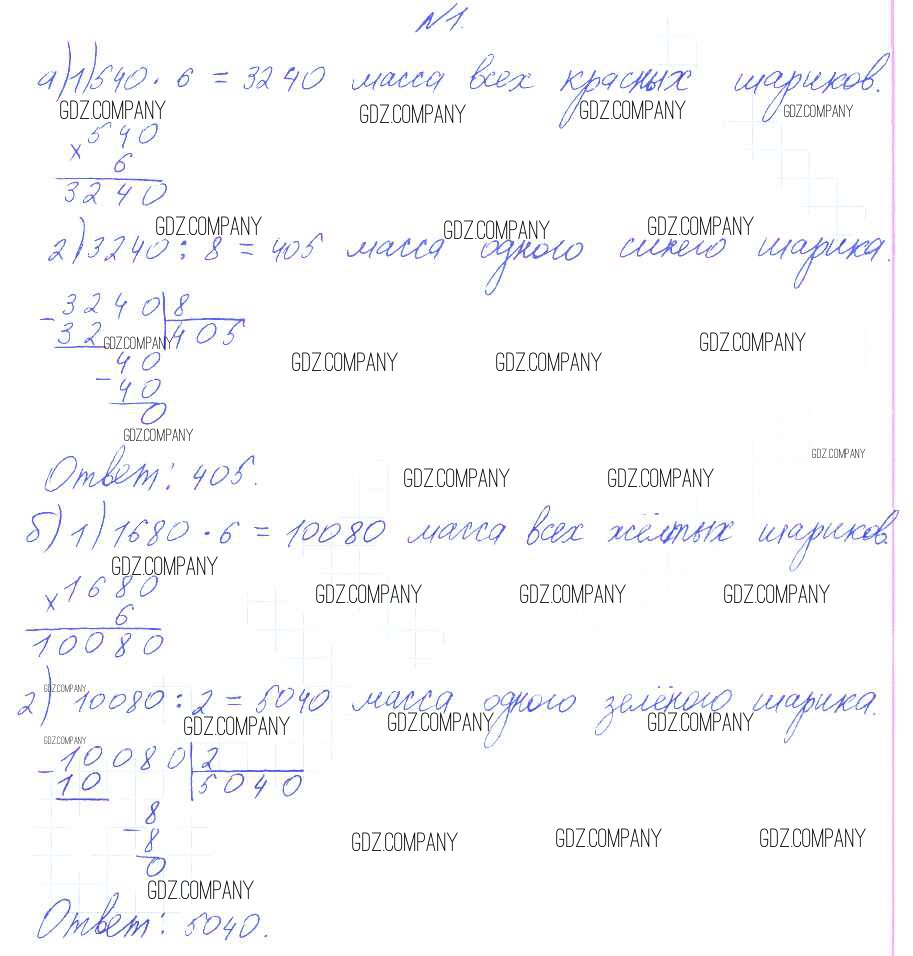 №1.
а) 1) 540 · 6 = 3240 масса всех красных шариков.
GDZ.COMPANY GDZ.COMPANY GDZ.COMPANY GDZ.COMPANY
× 540
6
3240
GDZ.COMPANY GDZ.COMPANY GDZ.COMPANY
2) 3240 : 8 = 405 масса одного синего шарика.
- 3240 | 8
32 | 405
GDZ.COMPANY GDZ.COMPANY GDZ.COMPANY GDZ.COMPANY
40
- 40
0
GDZ.COMPANY GDZ.COMPANY
Ответ: 405.
GDZ.COMPANY GDZ.COMPANY
б) 1) 1680 · 6 = 10080 масса всех жёлтых шариков
GDZ.COMPANY GDZ.COMPANY GDZ.COMPANY GDZ.COMPANY
× 1680
6
10080
GDZ.COMPANY
2) 10080 : 2 = 5040 масса одного зелёного шарика.
GDZ.COMPANY GDZ.COMPANY GDZ.COMPANY
GDZ.COMPANY
- 10080 | 2
10 | 5040
8
- 8
0
GDZ.COMPANY GDZ.COMPANY GDZ.COMPANY
GDZ.COMPANY
Ответ: 5040.